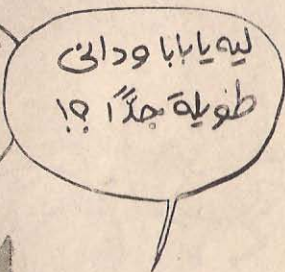 ليه يا بابا ودانى
طويلة جدًّا ؟!